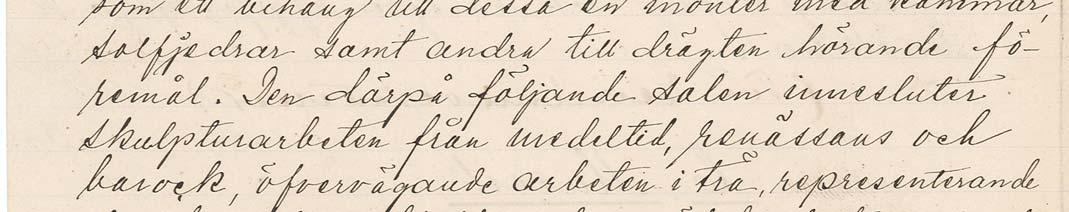 som ett behang till dessa en monter med kammar,
solfjedrar samt andra till drägten hörande fö-
remål. Den därpå följande salen innesluter
skulpturarbeten från medeltid, renässans och
barock, öfvervägande arbeten i trä, representerande